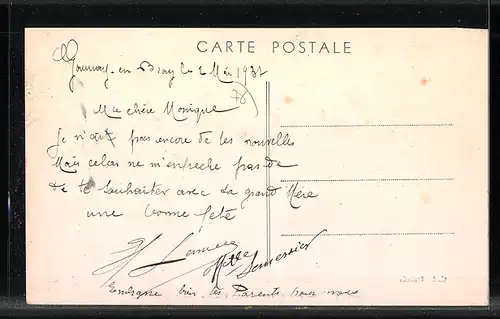 CARTE POSTALE
Gournay-en Bray le 2 Mai 1937
76
Ma chère Monique
Je n'ai pas encore de tes nouvelles
Mais celas ne m'enpeche pas de
de te souhaiter avec ta grand Mère
une bonne fete
Mlle
Embrasse bien tes Parents pour nous